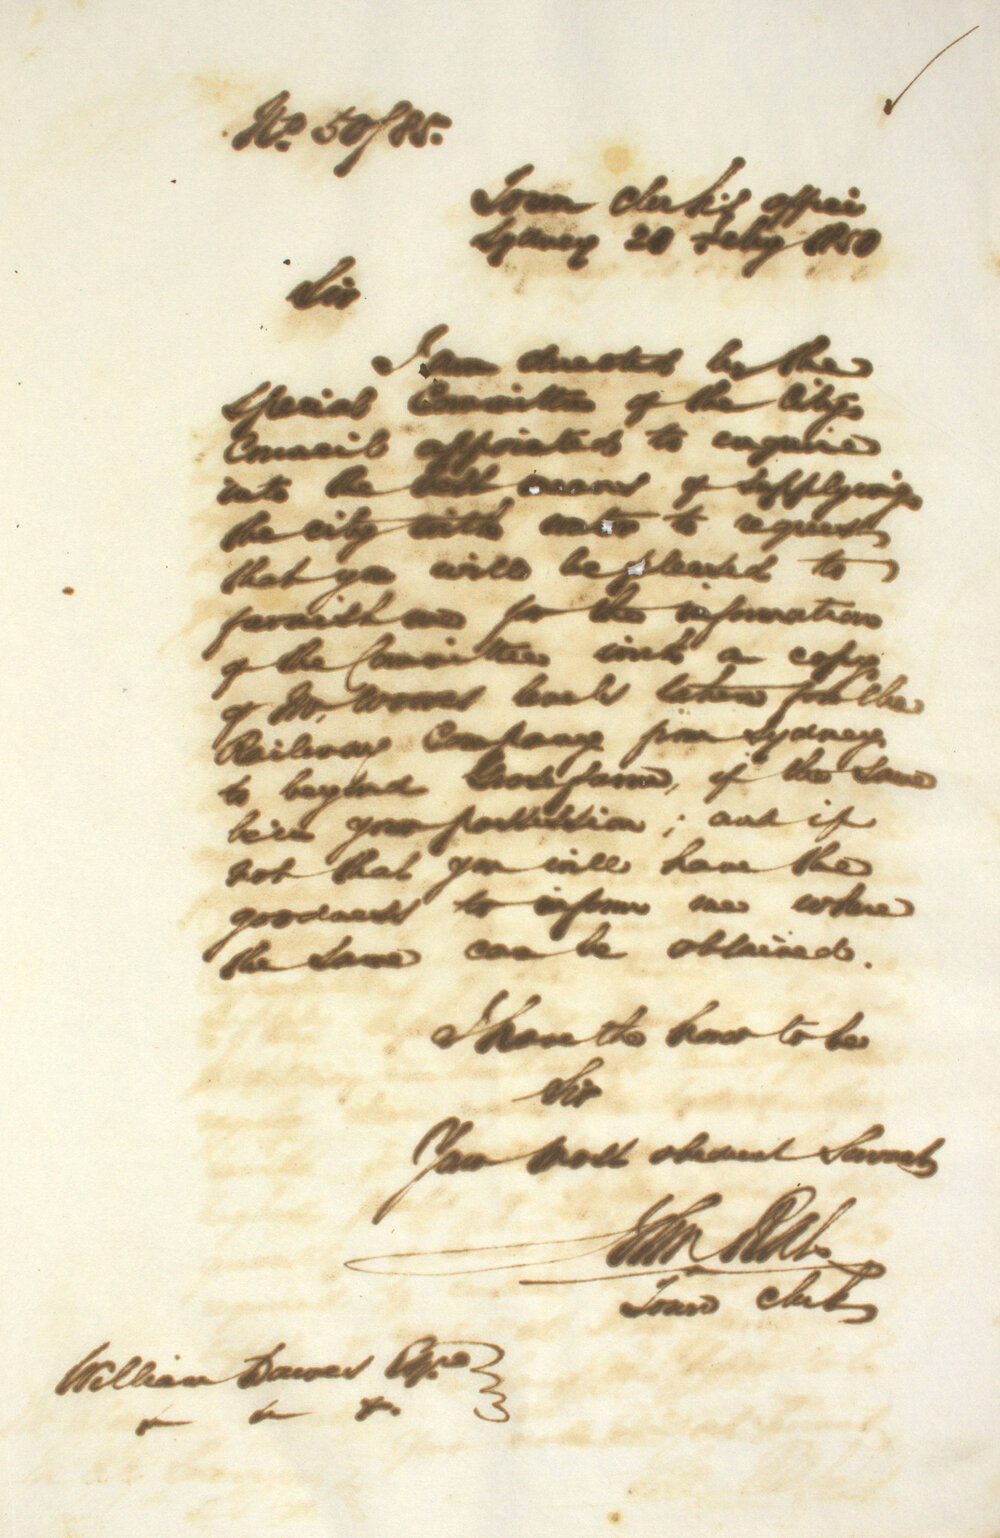 No 50/85.
Town Clerk's office
Sydney 20 Feby 1850
Sir
I am directed by the
Special Committee of the City
Council appointed to enquire
into the best means of supplying
the city with water to request
that you will be pleased to
furnish me for the information
of the Committee with a copy
of Mr. levels taken for the
Railway Company from Sydney
to beyond Grose farm, if the same
be in your possession; and if
not that you will have the
goodness to inform me where
the same can be obtained.
I have the honor to be
Sir
Your most obedient Servant
John
Town Clerk
William Dawes Esqre